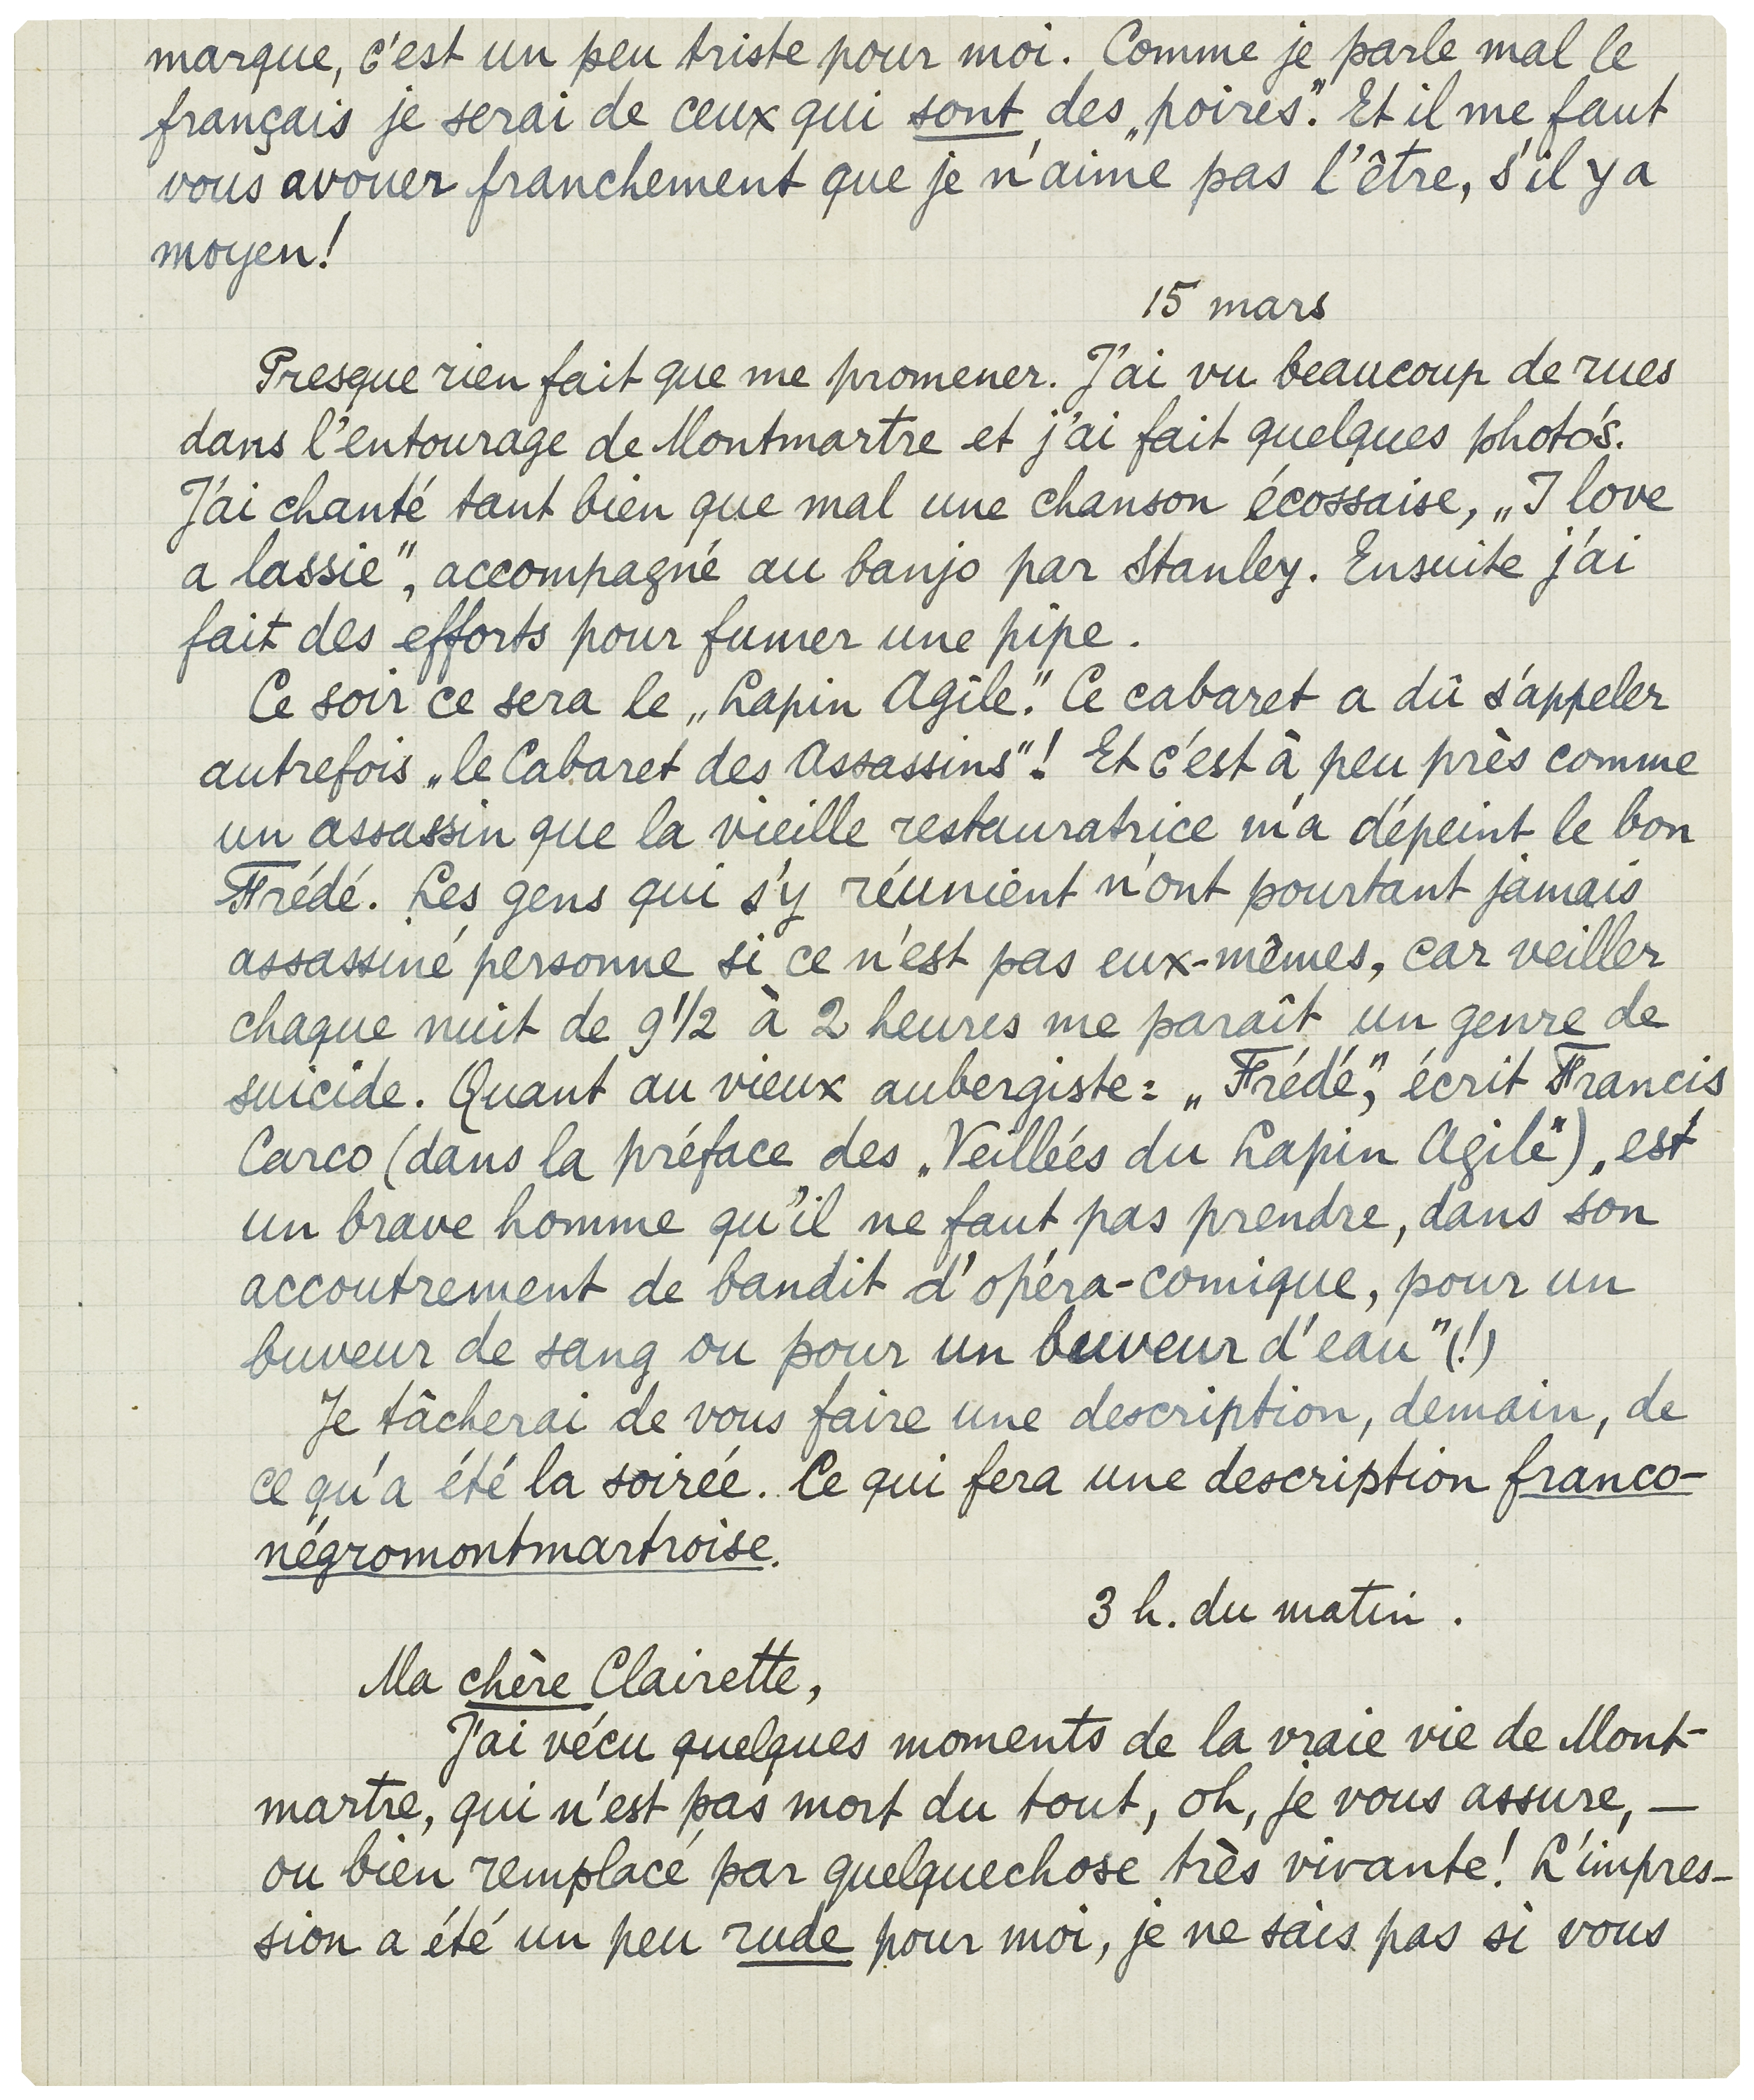 marque, c'est un peu triste pour moi. Comme je parle mal le
français je serai de ceux qui sont des „poires”. Et il me faut
vous avouer franchement que je n'aime pas l'être, s'il y a
moyen!
15 mars
Presque rien fait que me promener. J'ai vu beaucoup de rues
dans l'entourage de Montmartre et j'ai fait quelques photo's.
J'ai chanté tant bien que mal une chanson écossaise, „I love
a lassie”, accompagné au banjo par Stanley. Ensuite j'ai
fait des efforts pour fumer une pipe.
Ce soir ce sera le „Lapin Agile”. Ce cabaret a dû s'appeler
autrefois „le Cabaret des Assassins”! Et c'est à peu près comme
un assassin que la vieille restauratrice m'a dépeint le bon
Frédé. Les gens qui s'y réunient n'ont pourtant jamais
assassiné personne si ce n'est pas eux-mêmes, car veiller
chaque nuit de 9 1/2 à 2 heures me paraît un genre de
suicide. Quant au vieux aubergiste: „Frédé”, écrit Francis
Carco (dans la préface des „Veilleés du Lapin Agile”), „est
un brave homme qu'il ne faut pas prendre, dans son
accoutrement de bandit d'opéra-comique, pour un
buveur de sang ou pour un buveur d'eau” (!)
Je tâcherai de vous faire une description, demain, de
ce qu'a été la soirée. Ce qui fera une description franco-
négromontmartroise.
3 h. du matin.
Ma chère Clairette,
J'ai vécu quelques moments de la vraie vie de Mont-
martre, qui n'est pas mort du tout, oh, je vous assure, —
ou bien remplacé par quelquechose très vivante! L'impres-
sion a été un peu rude pour moi, je ne sais pas si vous